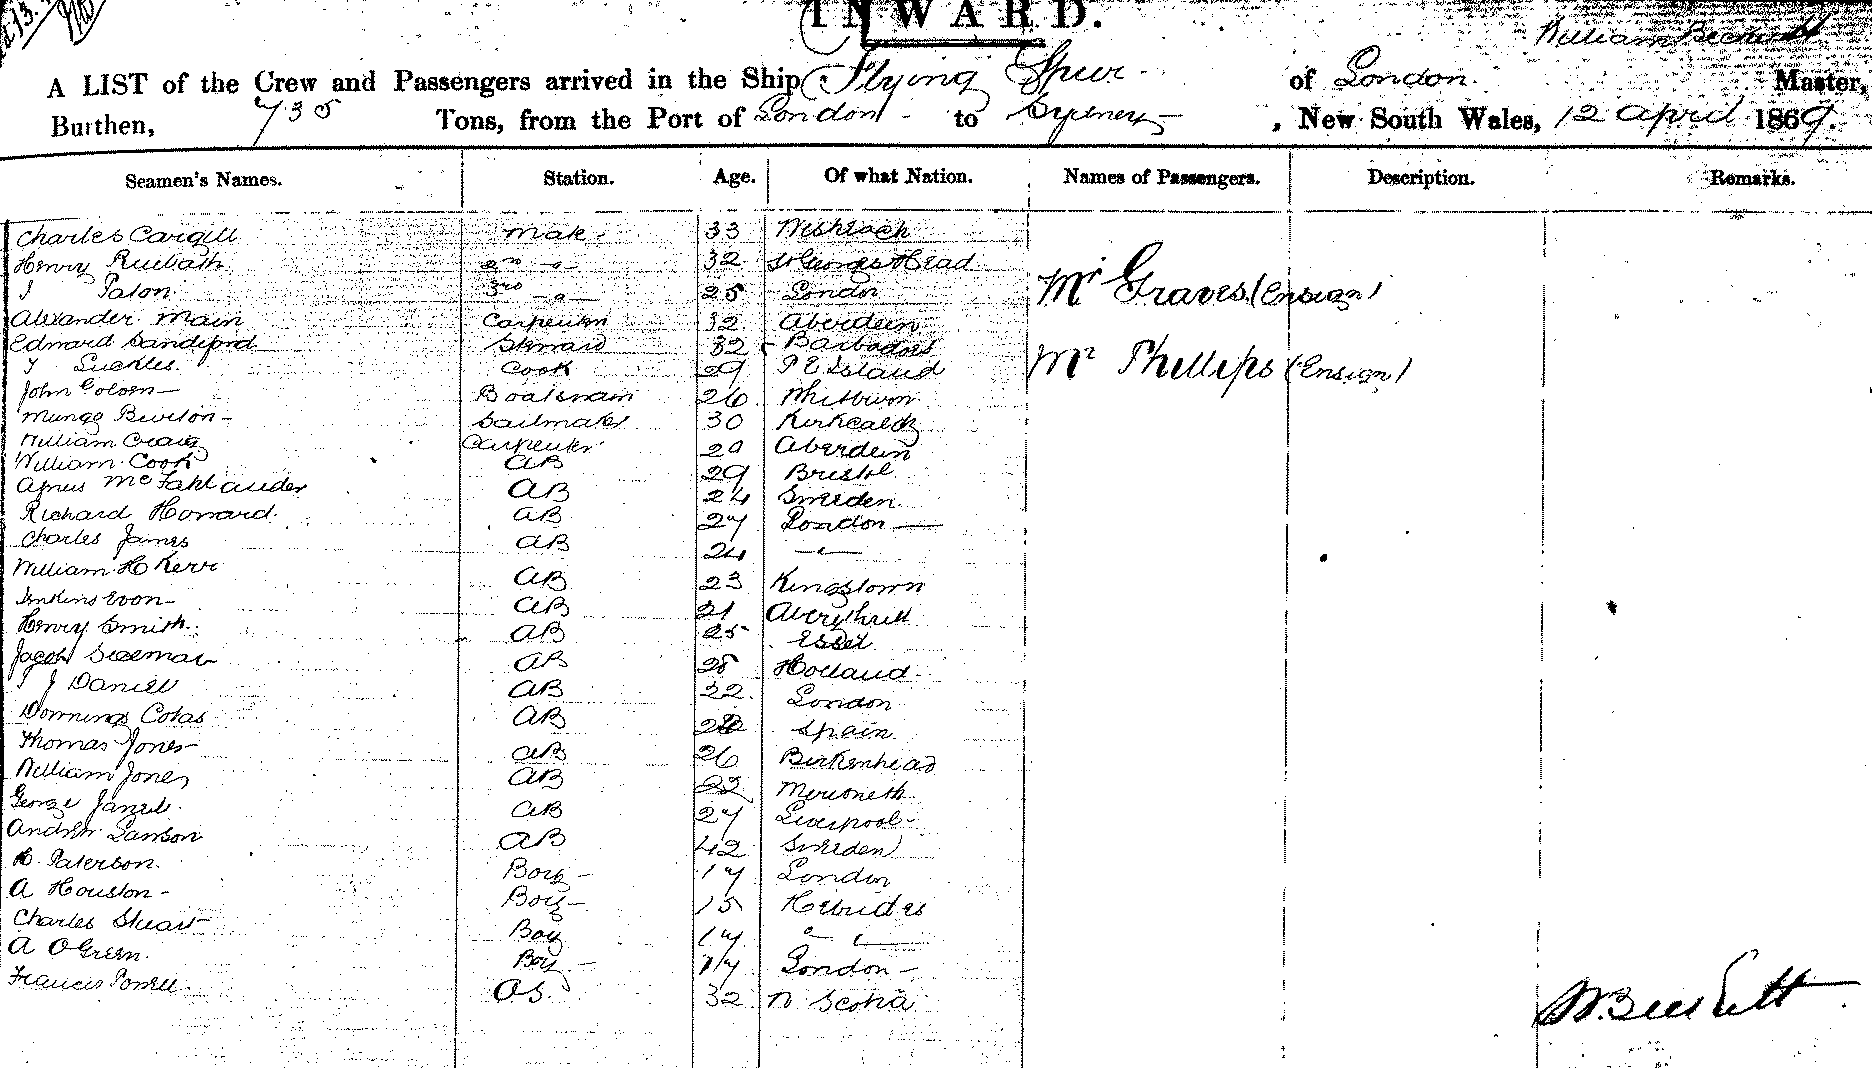 INWARD.
William Beckett
A LIST of the Crew and Passengers arrived in the Ship Flying Spur of London Master,
Burthen, 735 Tons, from the Port of London to Sydney, New South Wales, 12 April 1869.
Seamen's Names. Station. Age. Of what Nation. Names of Passengers. Description. Remarks.
Charles Cargill mate 33
Henry 2nd " 32 St Georges Head
J Paton 3rd " 25 London
Mr Graves (Ensign)
Alexander Main Carpenter 32 Aberdeen
Edward Sandiford Steward 32 Barbadoes
Cook 29 P E Island
Mr Phillips (Ensign)
John Boatswain 26 Whitburn
Mungo Sailmaker 30 Kirkcaldy
William Craig Carpenter 29 Aberdeen
William Cook AB 29 Bristol
AB 24 Sweden
Richard Howard AB 27 London
Charles James AB 24 "
William H Kerr AB 23 Kingstown
Jenkins Evon AB 21
Henry Smith AB 25 Essex
Jacob AB 28 Holland
J Daniell AB 32 London
AB Spain
Thomas Jones AB 26 Birkenhead
William Jones AB 23 Merioneth
George AB 27 Liverpool
Andrew Lawson AB 42 Sweden
H. Paterson Boy 17 London
A Houston Boy 15 Hebrides
Charles Stuart Boy 17 " "
A O Green Boy 17 London
Francis Powell O.S. 32 N Scotia
W. Beckett